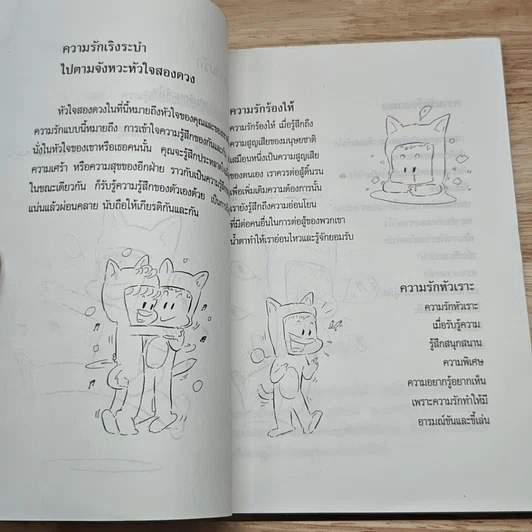 ความรักเริงระบำ
ไปตามจังหวะหัวใจสองดวง
หัวใจสองดวงในที่นี้หมายถึงหัวใจของคุณและของ
ความรักแบบนี้หมายถึง การเข้าใจความรู้สึกของกันและกัน
นั่งในหัวใจของเขาหรือเธอคนนั้น คุณจะรู้สึกประหลาดใจ
ความเศร้า หรือความสุขของอีกฝ่าย ราวกับเป็นความรู้สึก
ในขณะเดียวกัน ก็รับรู้ความรู้สึกของตัวเองด้วย
แน่นแล้วผ่อนคลาย นับถือให้เกียรติกันและกัน
ความรักร้องไห้
ความรักร้องไห้ เมื่อรู้สึกถึง
ความสูญเสียของมนุษยชาติ
เสมือนหนึ่งเป็นความสูญเสีย
ของตนเอง เราควรต่อสู้ดิ้นรน
เพื่อเพิ่มเติมความต้องการนั้น
เรายังรู้สึกถึงความอ่อนโยน
ที่มีต่อคนอื่นในการต่อสู้ของพวกเขา
น้ำตาทำให้เราอ่อนไหวและรู้จักยอมรับ
ความรักหัวเราะ
ความรักหัวเราะ
เมื่อรับรู้ความ
รู้สึกสนุกสนาน
ความพิเศษ
ความอยากรู้อยากเห็น
เพราะความรักทำให้มี
อารมณ์ขันและขี้เล่น